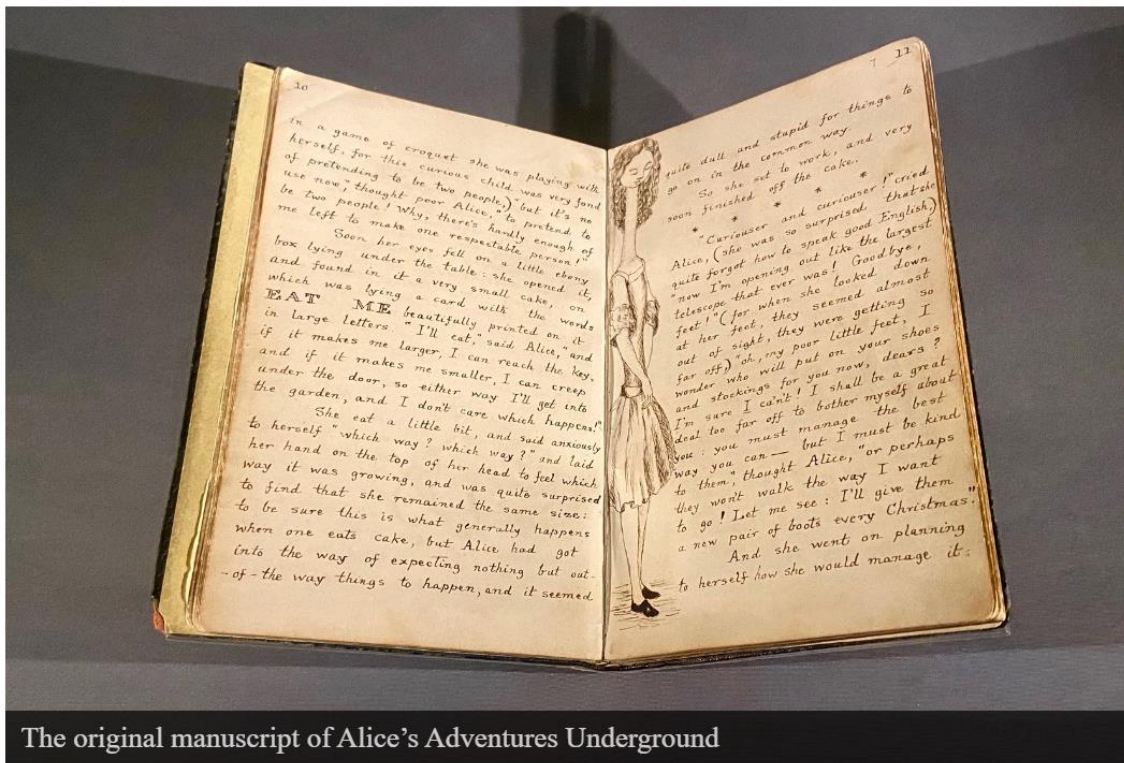 10
in a game of croquet she was playing with
herself, for this curious child was very fond
of pretending to be two people,) "but it's no
use now," thought poor Alice, "to pretend to
be two people! Why, there's hardly enough of
me left to make one respectable person!"
Soon her eyes fell on a little ebony
box lying under the table: she opened it,
and found in it a very small cake, on
which was lying a card with the words
EAT ME beautifully printed on it
in large letters. "I'll eat," said Alice, "and
if it makes me larger, I can reach the key,
and if it makes me smaller, I can creep
under the door, so either way I'll get into
the garden, and I don't care which happens!"
She eat a little bit, and said anxiously
to herself "which way? which way?" and laid
her hand on the top of her head to feel which
way it was growing, and was quite surprised
to find that she remained the same size:
to be sure this is what generally happens
when one eats cake, but Alice had got
into the way of expecting nothing but out-
-of-the way things to happen, and it seemed
7 11
quite dull and stupid for things to
go on in the common way.
So she set to work, and very
soon finished off the cake.
* * * *
"Curiouser and curiouser!" cried
Alice, (she was so surprised that she
quite forgot how to speak good English,)
"now I'm opening out like the largest
telescope that ever was! Goodbye,
feet!" (for when she looked down
at her feet, they seemed almost
out of sight, they were getting so
far off,) "oh, my poor little feet, I
wonder who will put on your shoes
and stockings for you now, dears?
I'm sure I ca'n't! I shall be a great
deal too far off to bother myself about
you: you must manage the best
way you can — but I must be kind
to them", thought Alice, "or perhaps
they won't walk the way I want
to go! Let me see: I'll give them
a new pair of boots every Christmas."
And she went on planning
to herself how she would manage it:
The original manuscript of Alice's Adventures Underground